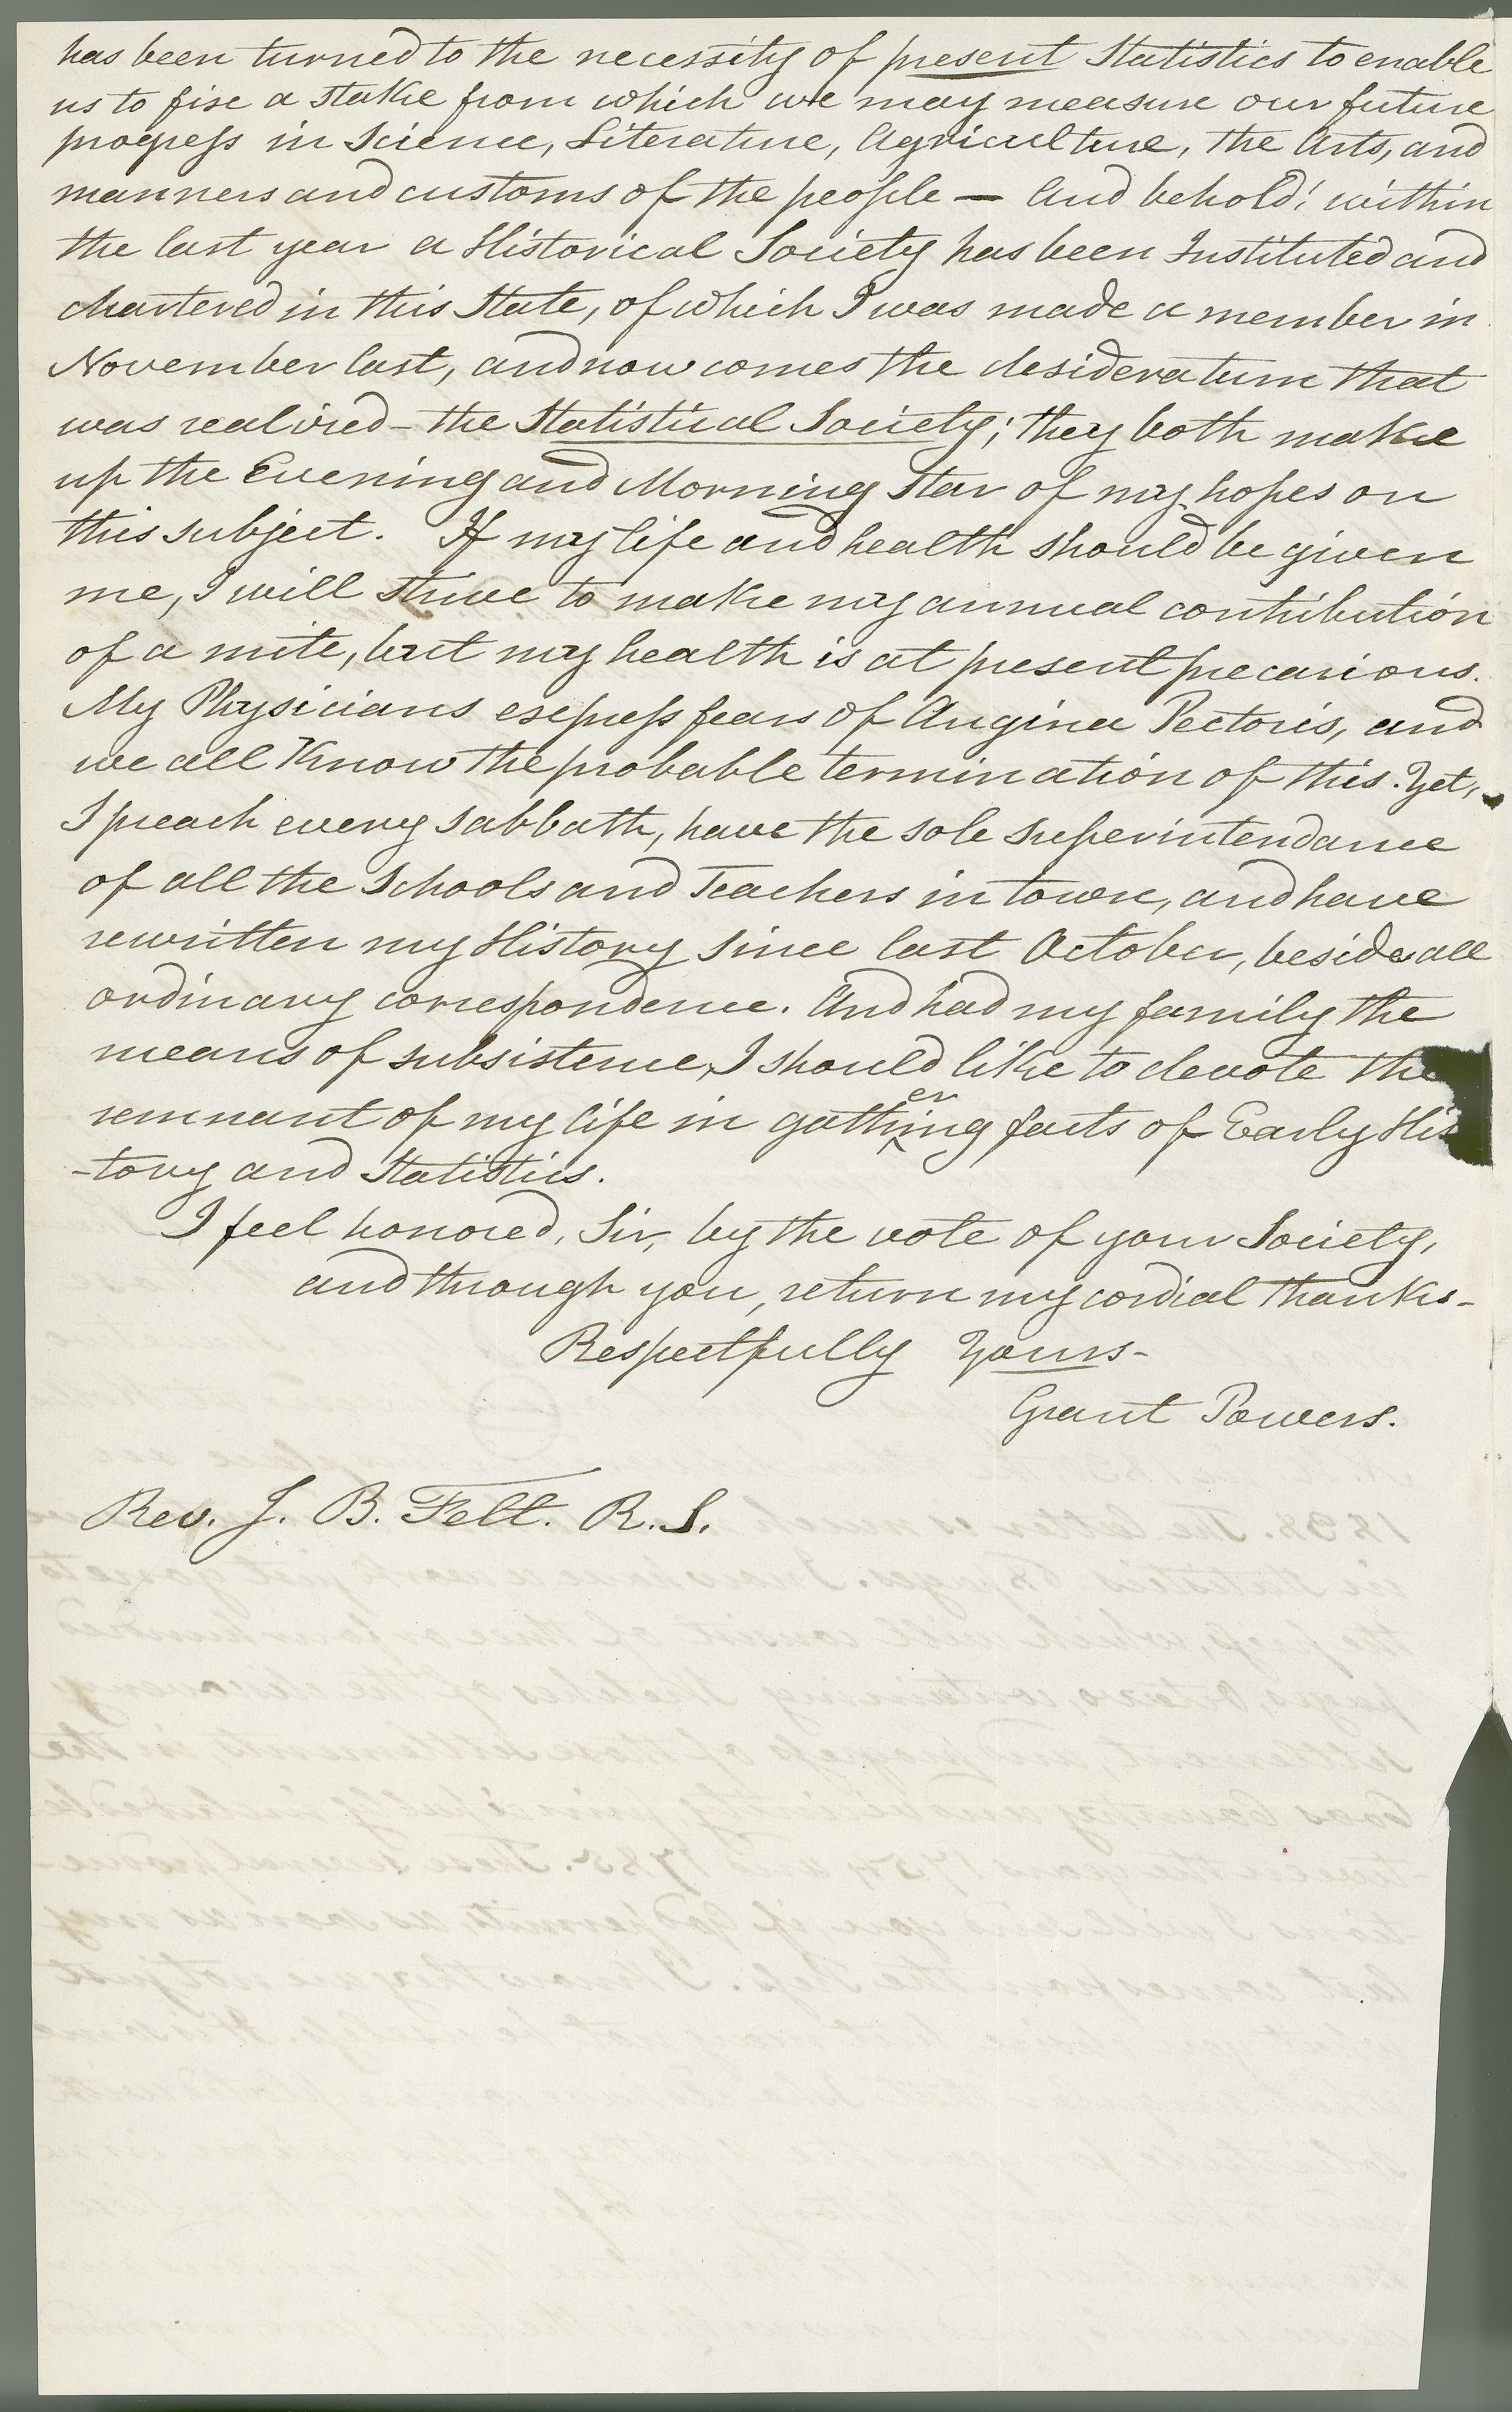 has been turned to the necessity of present Statistics to enable
us to fixe a stake from which we may measure our future
progress in Science, Literature, Agriculture, the Arts, and
manners and customs of the people — And behold! within
the last year a Historical Society has been Instituted and
chartered in this State, of which I was made a member in
November last, and now comes the desideratum that
was realired - the Statistical Society; they both make
up the Evening and Morning Star of my hopes on
this subject. If my life and health should be given
me, I will strive to make my annual contribution
of a mite, but my health is at present precarious.
My Physicians express fears of Angina Pectoris, and
we all Know the probable termination of this. Yet,
I preach every Sabbath, have the sole superintendance
of all the Schools and Teachers in town, and have
rewritten my History since last October, beside all
ordinary correspondence. And had my family the
means of subsistence, I should like to devote the
er
remnant of my life in gath^ing facts of Early His
-tory and Statistics.
I feel honored, Sir, by the vote of your Society,
and through you, return my cordial thanks-
Respectfully Yours-
Grant Powers.
Rev. J. B. Felt. R. S.